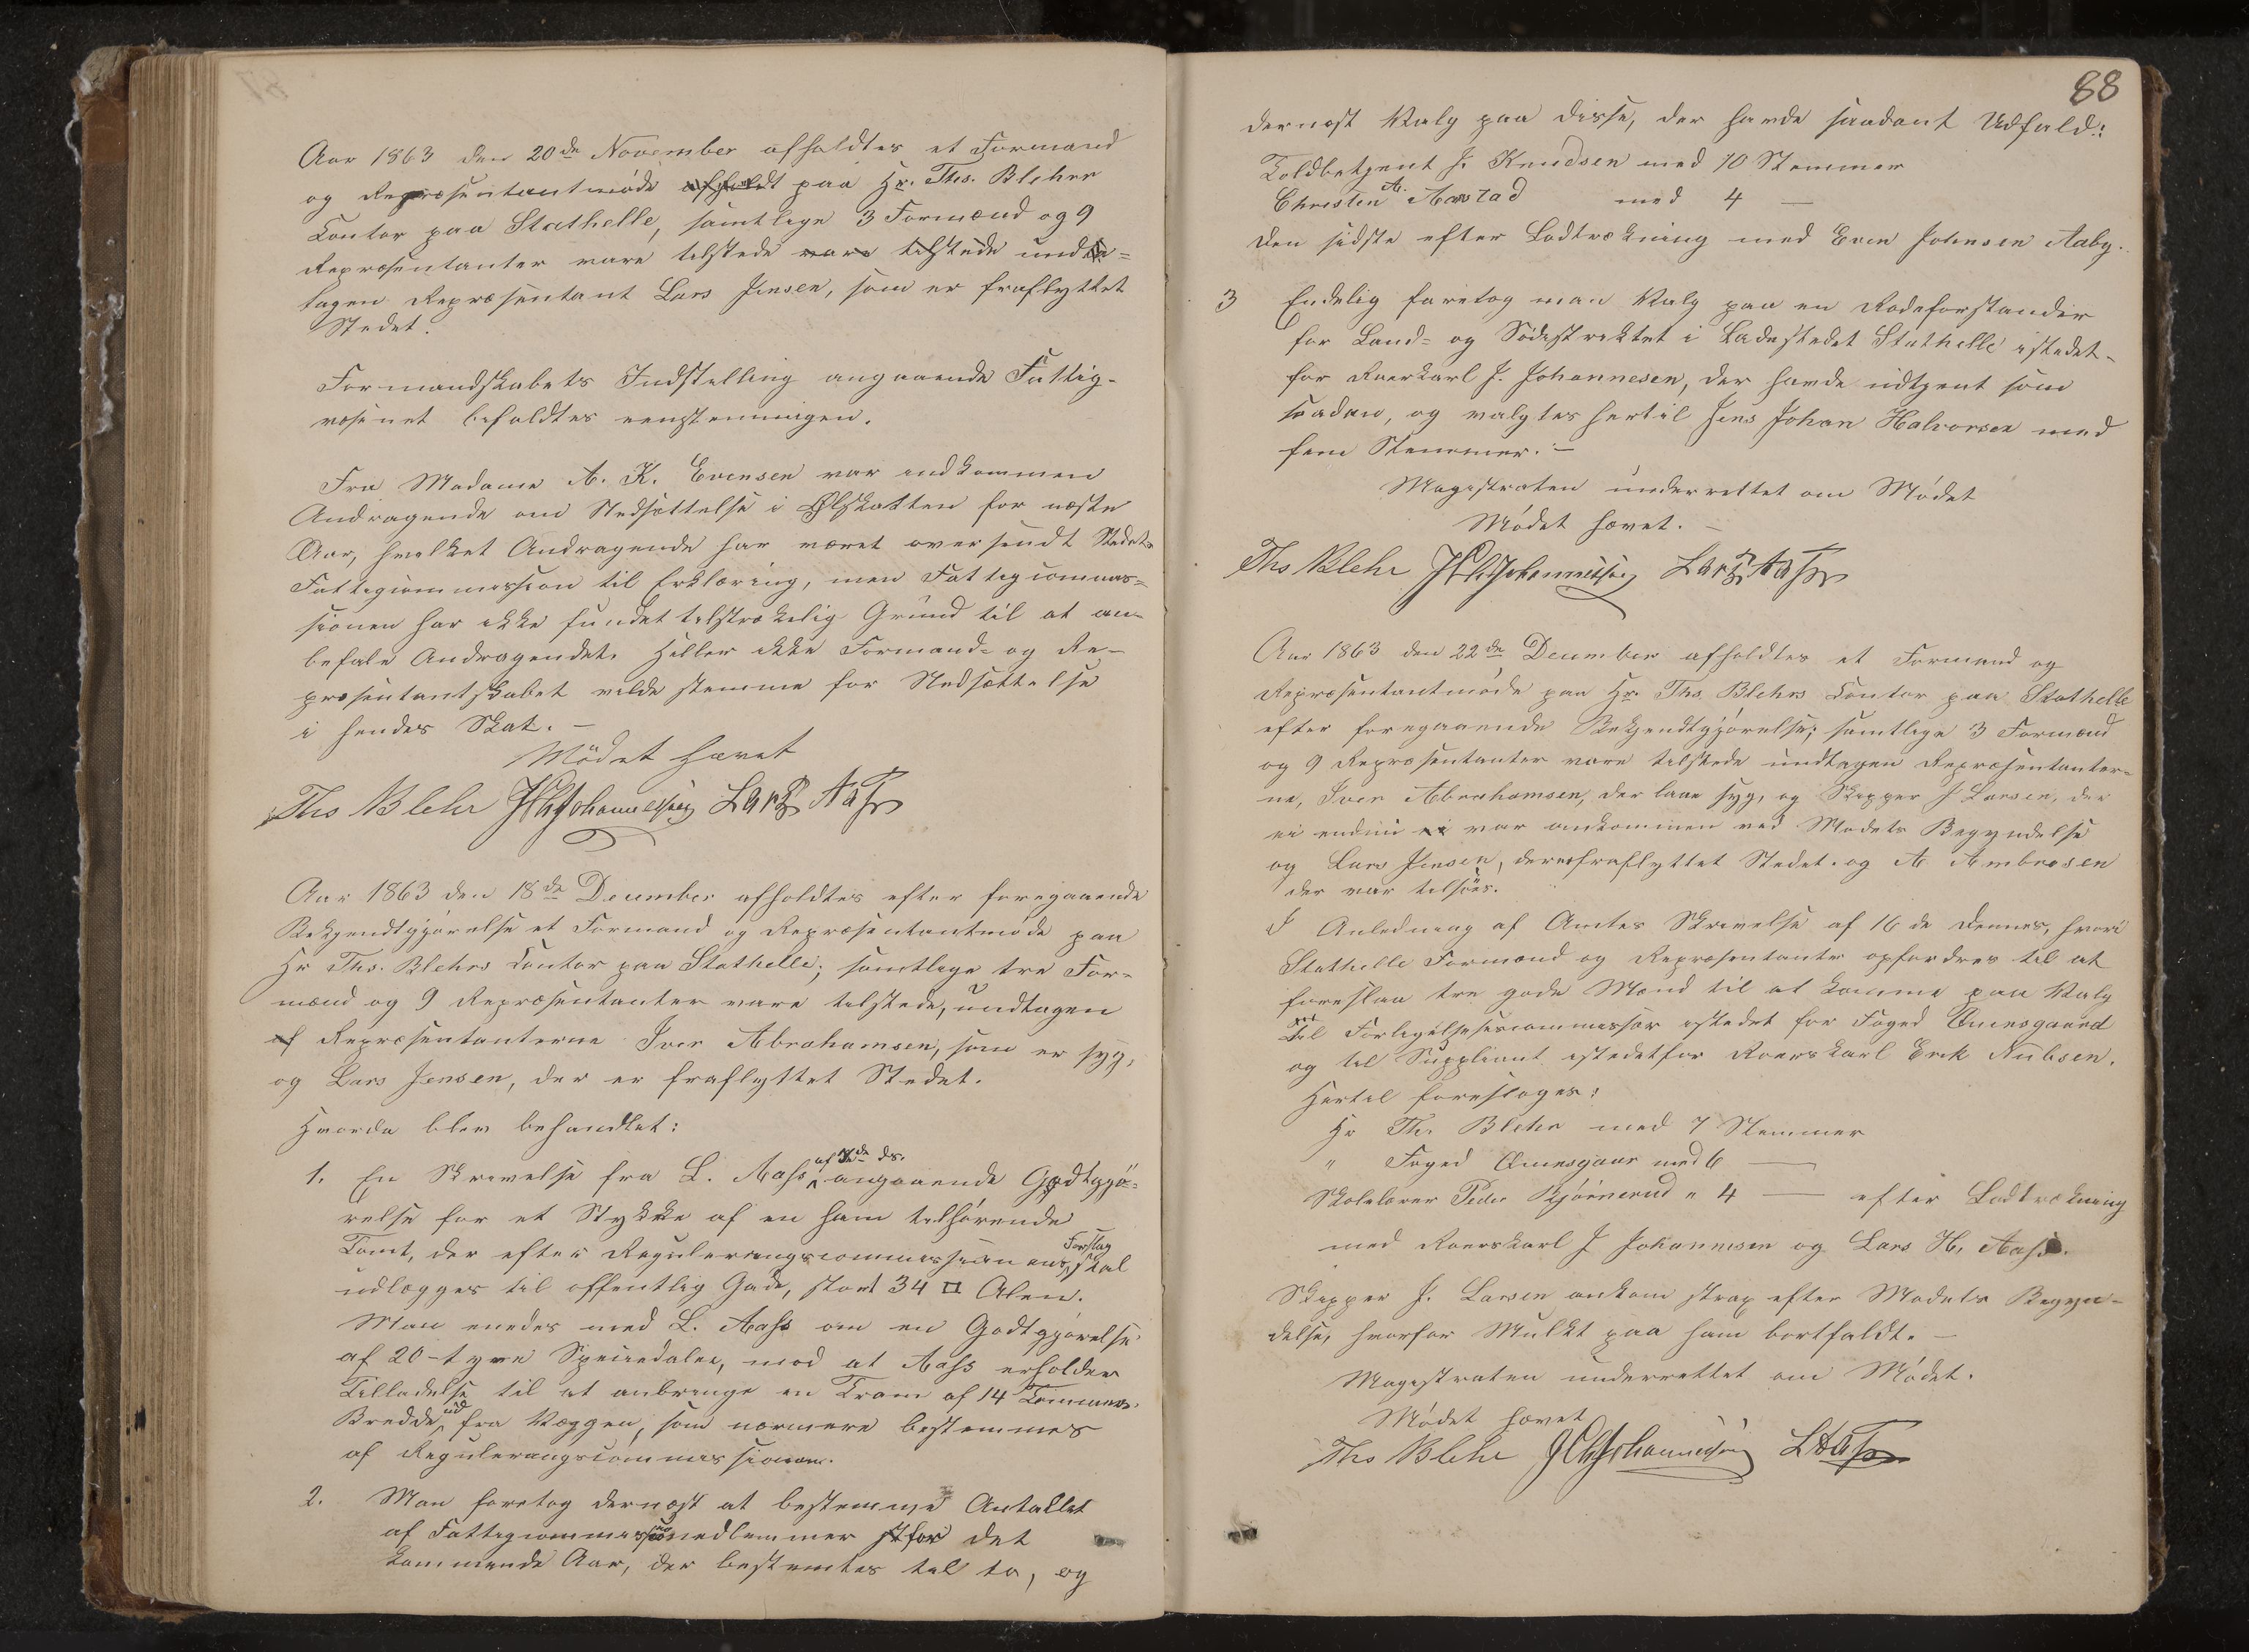 Aar 1863 den 20de November afholdtes et Formand
og Repræsentantmøde afholdt paa Hr. Ths. Blehrs
Contor paa Stathelle, samtlige 3 Formænd og 9
Repræsentanter vare tilstede vare tilstede undta=
tagen Repræsentant Lars Jensen, som er fraflyttet
Stedet.
Formandskabets Indstilling angaaende Fattig-
væsenet bifaldtes eenstemmigen.
Fra Madame A. K. Evensen var indkommen
Andragende om Nedsættelse i Ølskatten for næste
Aar, hvilket Andragende har været oversendt Stedets
Fattigcommission til Erklæring, men Fattigcommis=
sionen har ikke fundet tilstrækelig Grund til at an-
befale Andragendet. Heller ikke Formand- og Re-
præsentantskabet vilde stemme for Nedsættelse
i hendes Skat. —
Mødet hævet
Ths Blehr J Chr Johannessen Lars Aass
Aar 1863 den 18de December afholdtes efter foregaaende
Bekjendtgjørelse et Formand og Repræsentantmøde paa
Hr Ths. Blehrs Contor paa Stathelle; samtlige tre For-
mænd og 9 Repræsentanter vare tilstede, undtagen
af Repræsentanterne Iver Abrahamsen, som er syg,
og Lars Jensen, der er fraflyttet Stedet.
Hvorda blev behandlet:
1. En Skrivelse fra L. Aass af de ds. angaaende Godtgjø-
relse for et Stykke af en ham tilhørende
Tomt, der efter Reguleringscommissionens Forslag skal
udlægges til offentlig Gade, stort 34 □ Alen.
Man enedes med L. Aass om en Godtgjørelse
af 20 - tyve Speciedaler, mod at Aass erholder
Tilladelse til at anbringe en Tram af 14 Tommers
Bredde ud fra Væggen, som nærmere bestemmes
af Reguleringscommissionen.
2. Man foretog dernæst at bestemme Antallet
af Fattigcommissionsmedlemmer for det
kommende Aar, der bestemtes til to, og
88
dernæst Valg paa disse, der havde saadant Udfald:
Toldbetjent J. Knudsen med 10 Stemmer
Christen A. Aarstad med 4 —
den sidste efter Lodtrækning med Even Johnsen Aaby.
3 Endelig foretog man Valg paa en Rodeforstander
for Land- og Sødistriktet i Ladestedet Stathelle istedet-
for Roerkarl J. Johannesen, der havde udtjent som
saadan, og valgtes hertil Jens Johan Halvorsen med
fem Stemmer. —
Magistraten underrettet om Mødet
Mødet hævet. —
Ths Blehr J Chr Johannessen Lars Aass
Aar 1863 den 22de December afholdtes et Formand og
Repræsentantmøde paa Hr. Ths. Blehrs Contor paa Stathelle
efter foregaaende Bekjendtgjørelse; samtlige 3 Formænd
og 9 Repræsentanter vare tilstede undtagen Repræsentanter-
ne, Iver Abrahamsen, der laae syg, og Skipper J Larsen, der
ei endnu ei var ankommen ved Mødets Begyndelse
og Lars Jensen, der er fraflyttet Stedet. og A Ambrosen
der var tilsøes.
I Anledning af Amtes Skrivelse af 16 de dennes, hvori
Stathelle Formænd og Repræsentanter opfordres til at
foreslaa tre gode Mænd til at komme paa Valg
til Forligelsescommissær istedet for Foged Qvensgaard
og til Suppleant istedetfor Roerskarl Erik Nielsen.
Hertil foresloges:
Hr Th. Blehr med 7 Stemmer
" Foged Qvensgaar med 6 —
Skolelærer Peder Bjørnerud " 4 — efter Lodtrækning
med Roerskarl J Johannesen og Lars H. Aass.
Skipper J. Larsen ankom strax efter Mødets Begyn-
delse, hvorfor Mulkt paa ham bortfaldt. —
Magistraten underrettet om Mødet.
Mødet hævet
Ths Blehr J Chr Johannessen L Aass